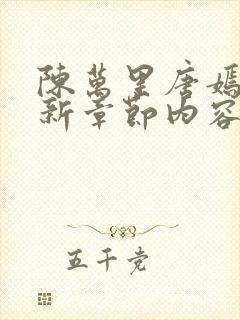 陳萬里唐嫣
新章節內容
五千党